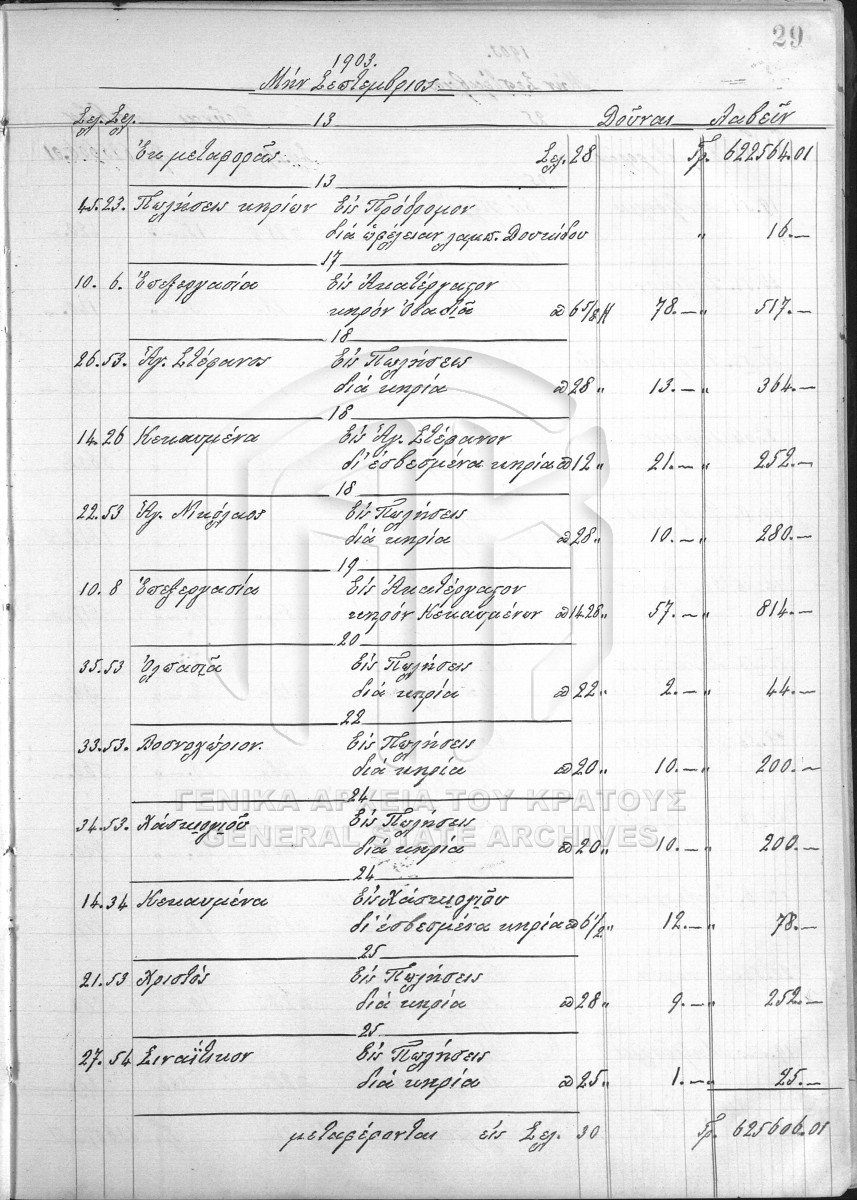 29
1903.
Μὴν Σεπτέμβριος
Σελ. Σελ. 13 Δοῦναι Λαβεῖν
Ἐκ μεταφορᾶς Σελ. 28 Γρ. 622564.01
13
45.23. Πωλήσεις κηρίων Εἰς Πρόδρομον
διὰ ὠφέλειαν λαμπ. " 16.—
17
10. 6. Ἐπεξεργασία Εἰς Ἀκατέργαστον
κηρὸν Ὀβαδιᾶ @ 6 5/8 78.— " 517.—
18
26.53. Ἁγ. Στέφανος Εἰς Πωλήσεις
διὰ κηρία @ 28 " 13.— " 364.—
18
14.26 Κεκαυμένα Εἰς Ἁγ. Στέφανον
δι' ἐσβεσμένα κηρία @ 12 " 21.— " 252.—
18
22.53 Ἁγ. Νικόλαος Εἰς Πωλήσεις
διὰ κηρία @ 28 " 10.— " 280.—
19
10. 8 Ἐπεξεργασία Εἰς Ἀκατέργαστον
κηρὸν Κεκαυμένων @ 14.28 " 57.— " 814.—
20
35.53 Εἰς Πωλήσεις
διὰ κηρία @ 22 " 2.— " 44.—
22
33.53. Βοσνοχώριον. Εἰς Πωλήσεις
διὰ κηρία @ 20 " 10.— " 200.—
24
ΓΕΝΙΚΑ ΑΡΧΕΙΑ ΤΟΥ ΚΡΑΤΟΥΣ
34.53. Χάσκιογιοῦ Εἰς Πωλήσεις
GENERAL STATE ARCHIVES
διὰ κηρία @ 20 " 10.— " 200.—
24
14.34 Κεκαυμένα Εἰς Χάσκιογιοῦ
δι' ἐσβεσμένα κηρία @ 6 1/2 " 12.— " 78.—
25
21.53 Χριστὸς Εἰς Πωλήσεις
διὰ κηρία @ 28 " 9.— " 252.—
25
27.54 Σιναΐτικον Εἰς Πωλήσεις
διὰ κηρία @ 25 " 1.— " 25.—
μεταφέρονται εἰς Σελ. 30 Γρ. 625606.01